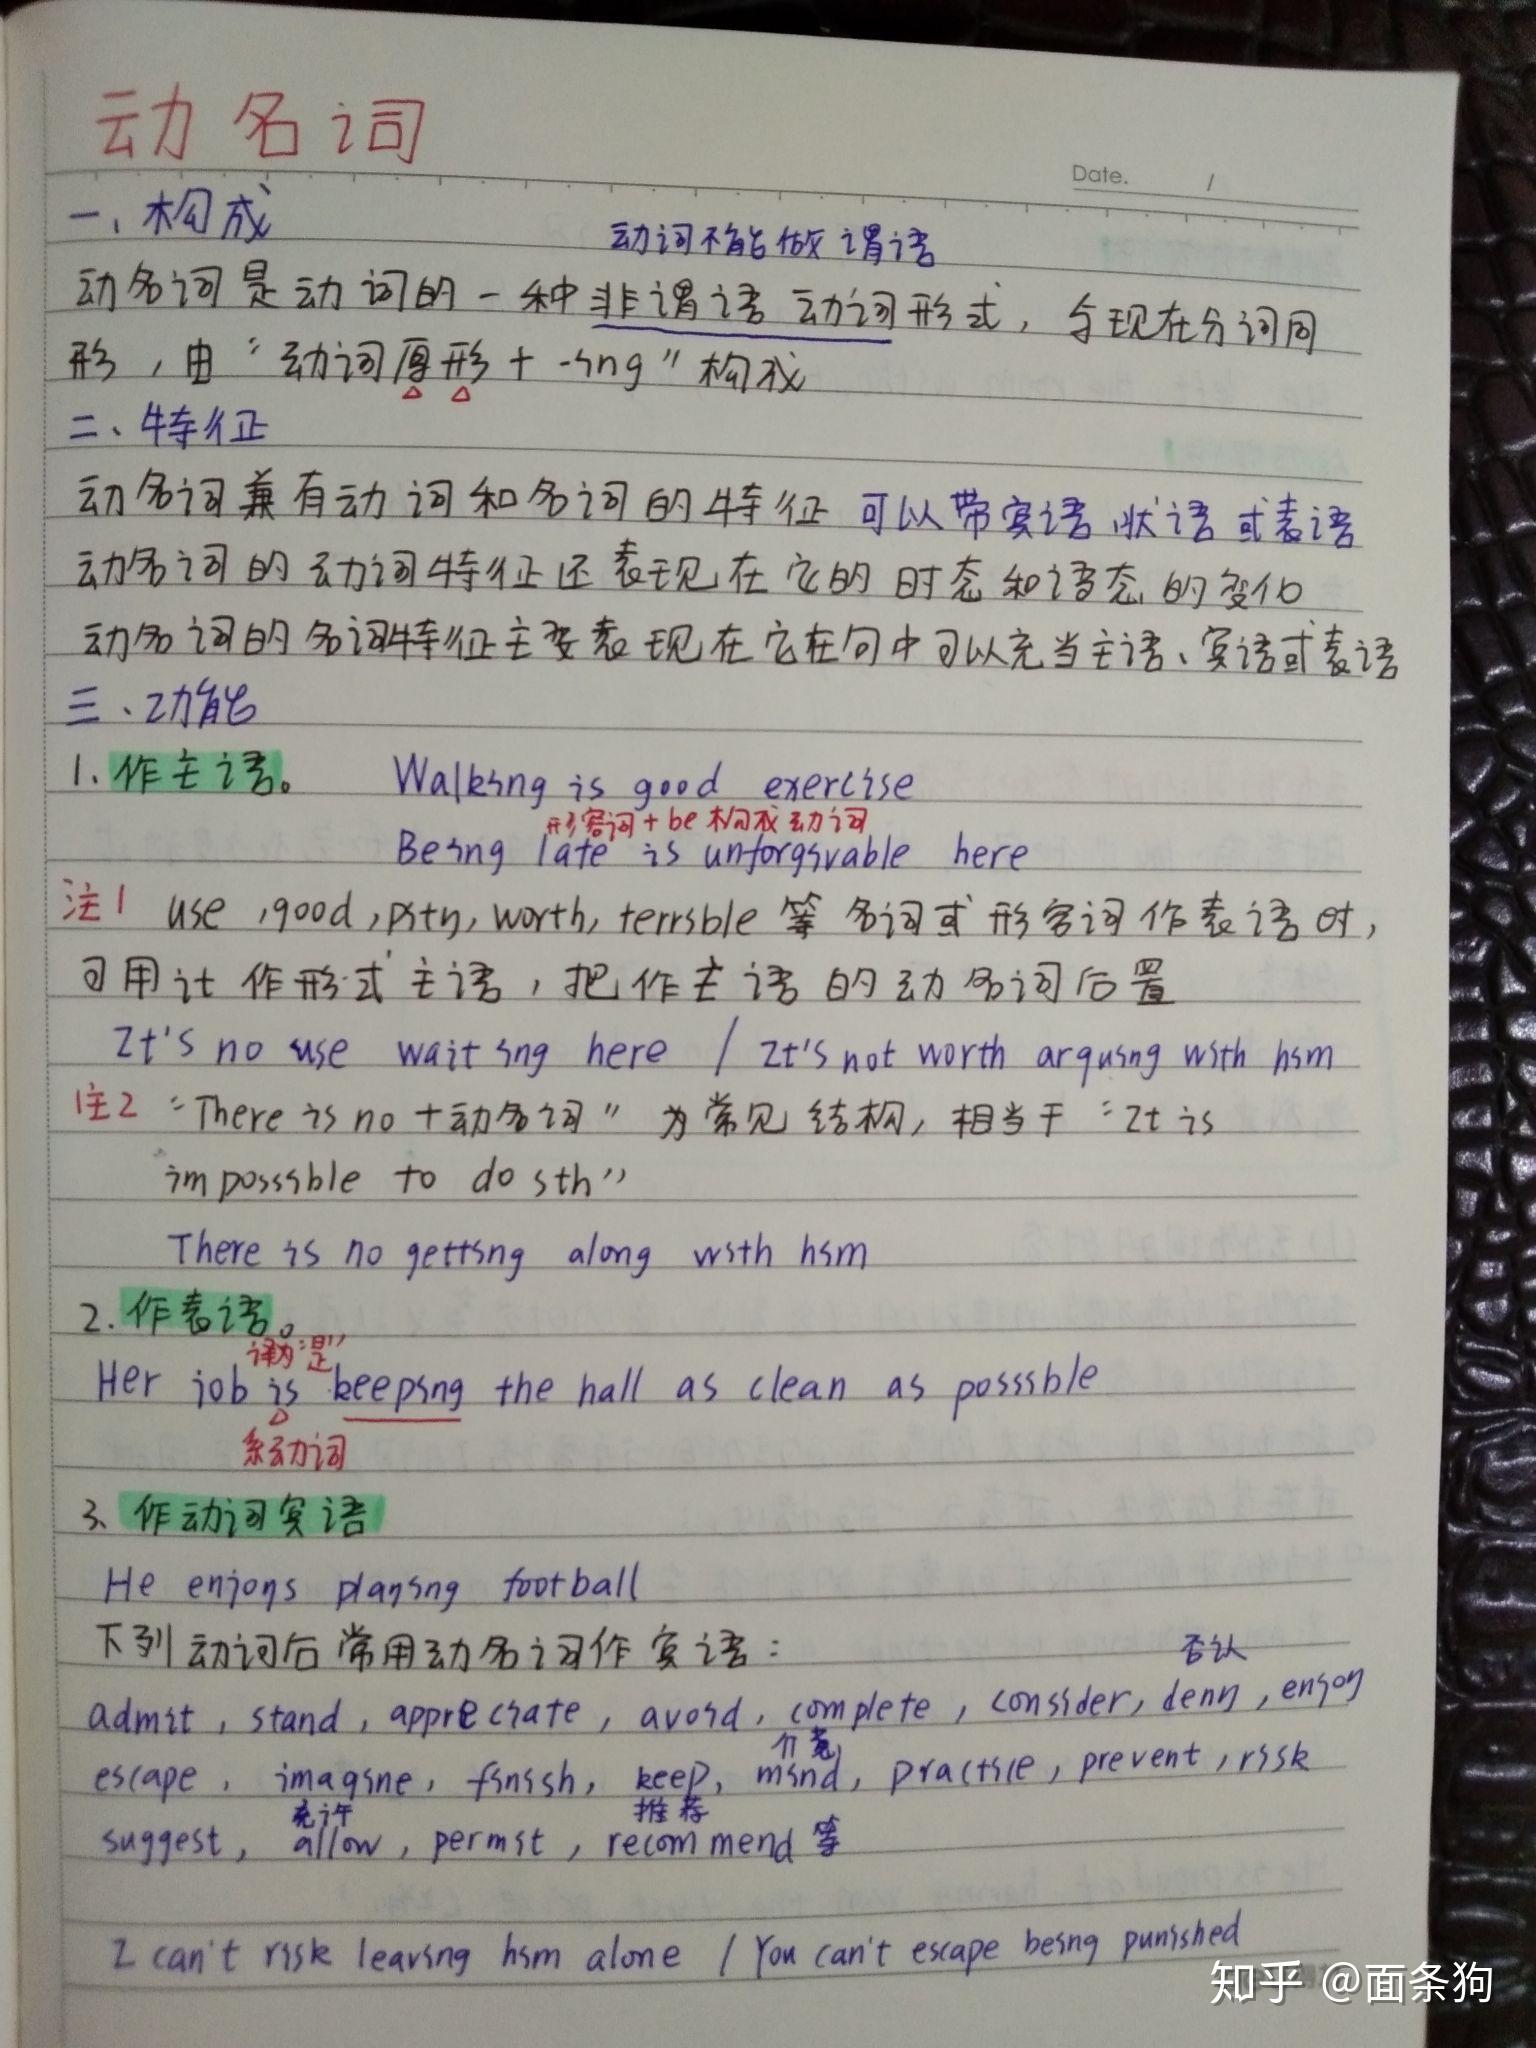 动名词
Date. /
一、构成
动词不能做谓语
动名词是动词的一种非谓语动词形式，与现在分词同
形，由“动词原形+-ing”构成
二、特征
动名词兼有动词和名词的特征 可以带宾语、状语或表语
动名词的动词特征还表现在它的时态和语态的变化
动名词的名词特征主要表现在它在句中可以充当主语、宾语或表语
三、功能
1. 作主语。 Walking is good exercise
形容词+be 构成动词
Being late is unforgivable here
注1 use, good, pity, worth, terrible 等名词或形容词作表语时，
可用it 作形式主语，把作主语的动名词后置
It's no use waiting here / It's not worth arguing with him
注2 “There is no+动名词” 为常见结构，相当于“It is
impossible to do sth”
There is no getting along with him
2. 作表语。
译为“是”
Her job is keeping the hall as clean as possible
系动词
3. 作动词宾语
He enjoys playing football
下列动词后常用动名词作宾语：
否认
admit, stand, appreciate, avoid, complete, consider, deny, enjoy
介意
escape, imagine, finish, keep, mind, practice, prevent, risk
允许 推荐
suggest, allow, permit, recommend 等
I can't risk leaving him alone / You can't escape being punished
知乎 @面条狗